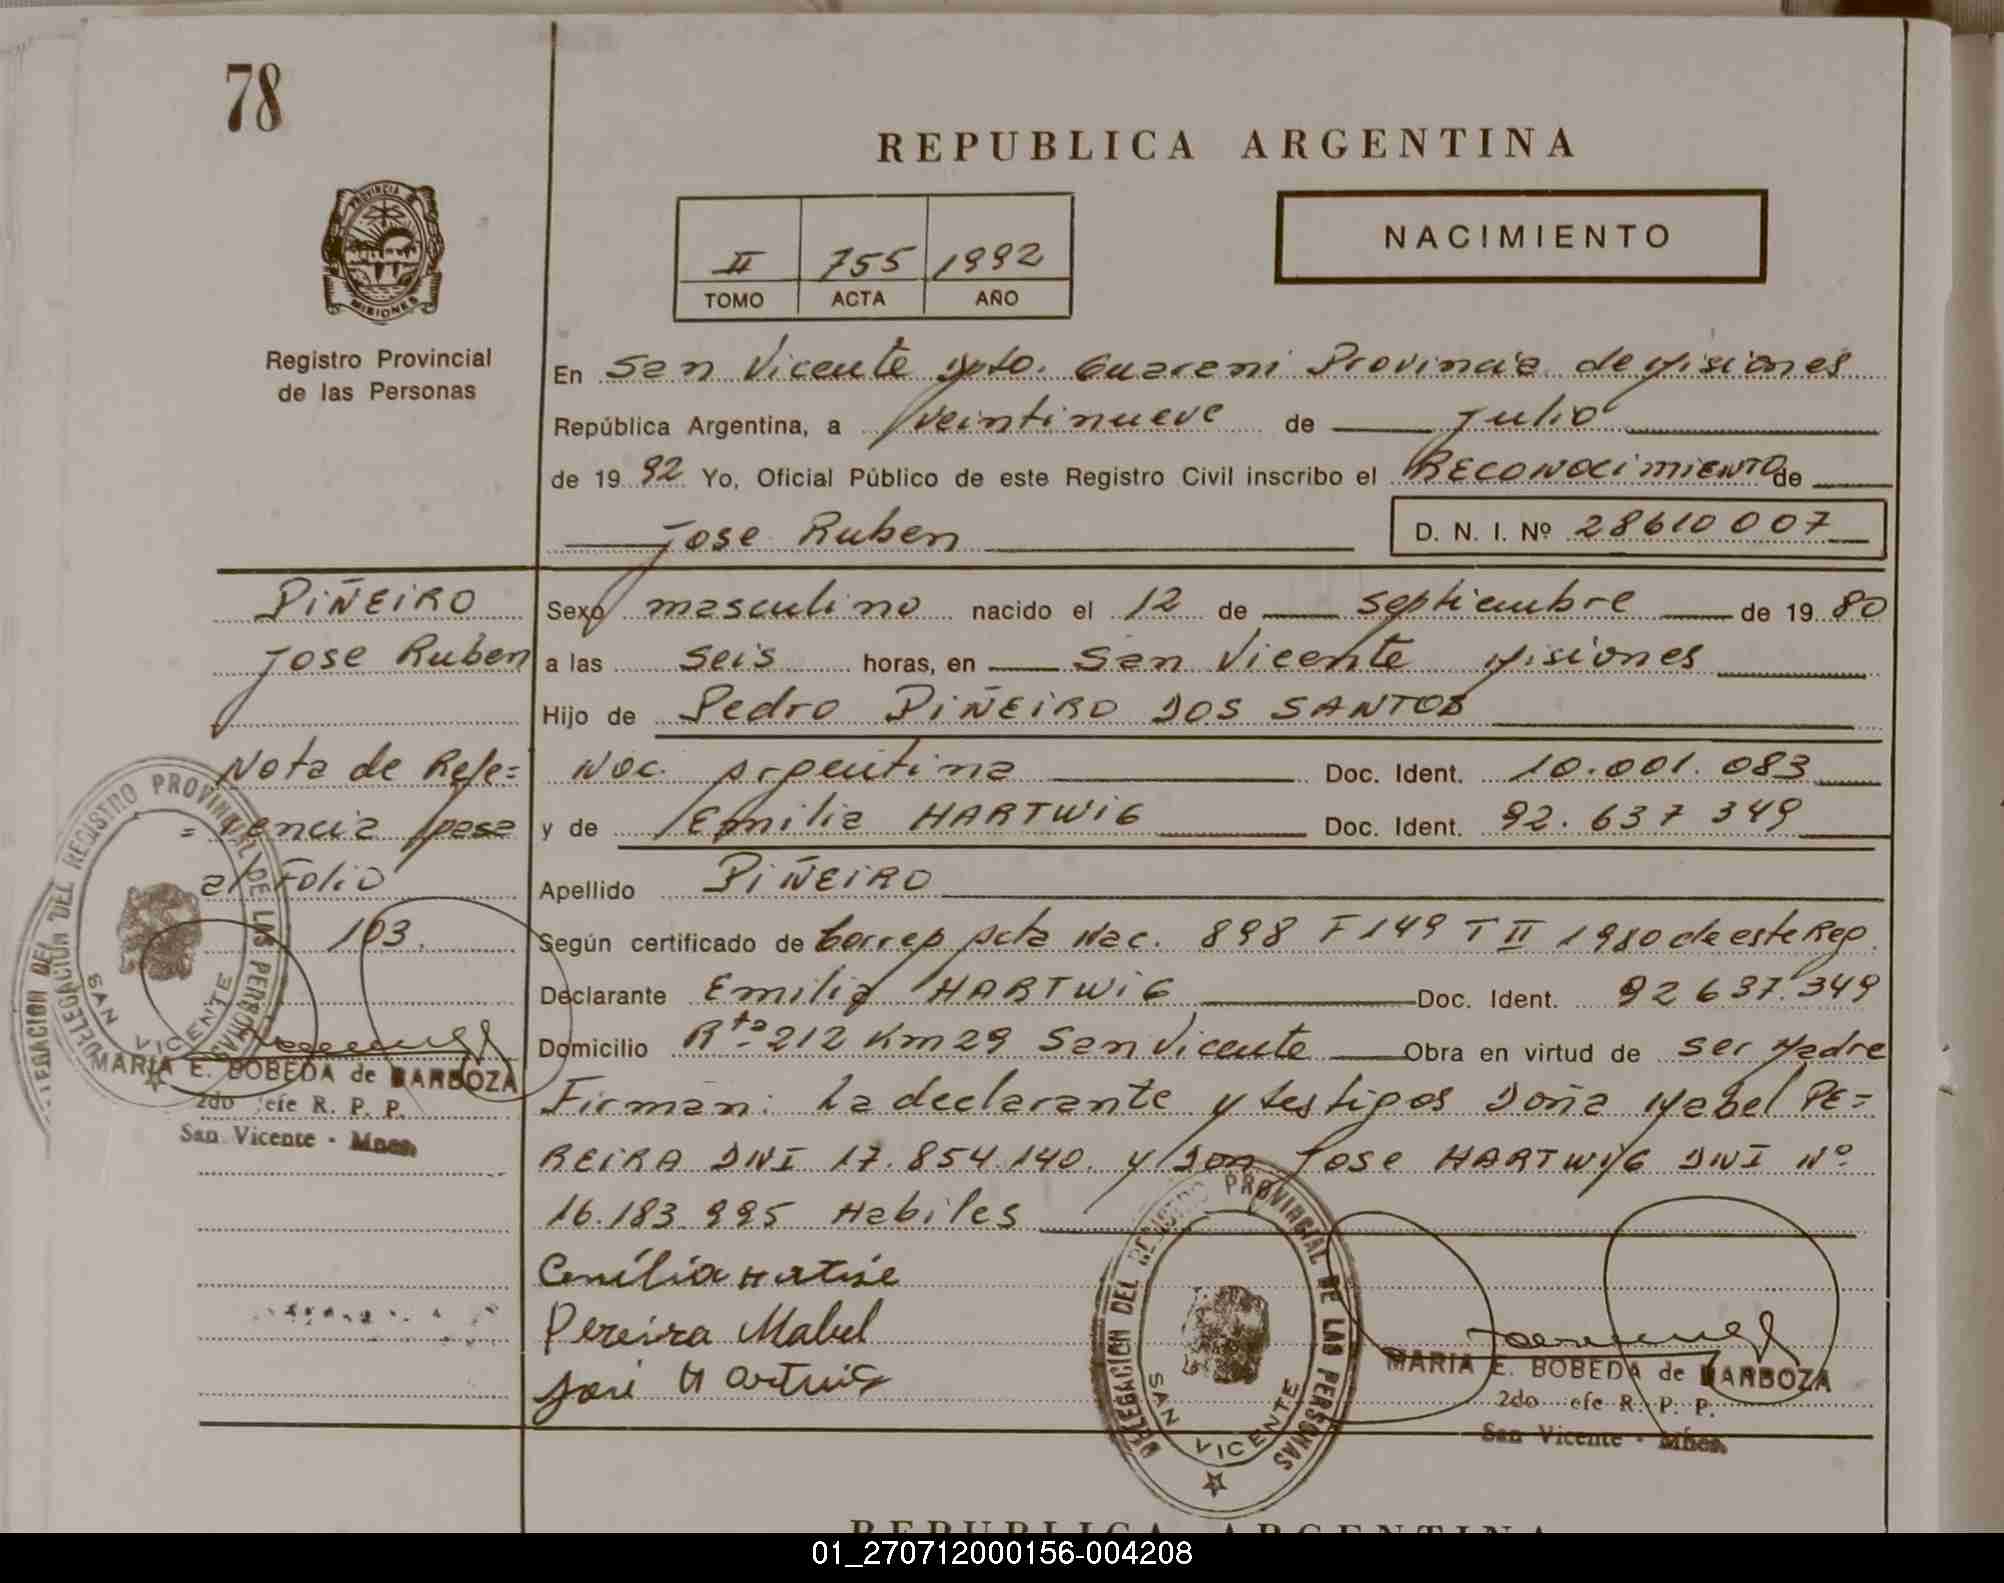 78
REPUBLICA ARGENTINA
PROVINCIA
MISIONES
II 755 1992
TOMO ACTA AÑO
NACIMIENTO
Registro Provincial
de las Personas
En San Vicente Dpto. Guarani Provincia de Misiones
República Argentina, a veintinueve de Julio
de 19 92 Yo, Oficial Público de este Registro Civil inscribo el RECONOCIMIENTO de
Jose Ruben D. N. I. Nº 28610007
PIÑEIRO
Jose Ruben
Sexo masculino nacido el 12 de septiembre de 19 80
a las seis horas, en San Vicente Misiones
Hijo de Pedro PIÑEIRO DOS SANTOS
Nac. Argentina Doc. Ident. 10.001.083
y de Emilia HARTWIG Doc. Ident. 92.637 349
Apellido PIÑEIRO
Nota de Refe=
=rencia pasa
al Folio
103.
Según certificado de Corresp Acta Nac. 898 F 149 T II 1980 de este Reg.
Declarante Emilia HARTWIG Doc. Ident. 92 637.349
Domicilio Rta 212 Km 29 San Vicente Obra en virtud de ser Madre
Firman: La declarante y testigos Doña Mabel PE=
REIRA DNI 17.854.140. y Don Jose HARTWIG DNI Nº
16.183.995 Habiles
DELEGACION DEL REGISTRO PROVINCIAL DE LAS PERSONAS
SAN VICENTE
MARIA E. BOBEDA de BARBOZA
2do Jefe R. P. P.
San Vicente - Mnes.
Pereira Mabel
José Hartwig
DELEGACION DEL REGISTRO PROVINCIAL DE LAS PERSONAS
SAN VICENTE
MARIA E. BOBEDA de BARBOZA
2do Jefe R. P. P.
San Vicente - Mnes.
REPUBLICA ARGENTINA
01_270712000156-004208